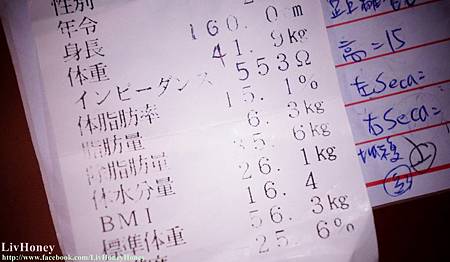 性別
年令
身長 160.0cm
体重 41.9kg
インピーダンス 553Ω
体脂肪率 15.1%
脂肪量 6.3kg
除脂肪量 35.6kg
体水分量 26.1kg
BMI 16.4
標準体重 56.3kg
25.6%
高=15
左Seca=
右Seca=
LivHoney
http://www.facebook.com/LivHoneyHoney